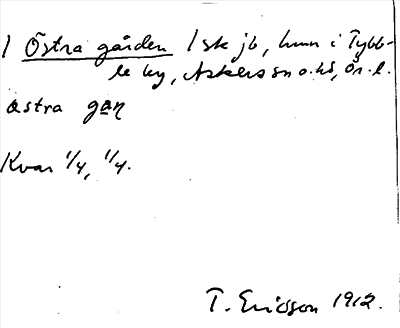 1 Östra gården 1 sk jb, hmn i Tybb-
le by, Askers sn o. hd, Ör. l.
östra gaṇ
Kvar 1/4, 1/4.
T. Ericsson 1912.